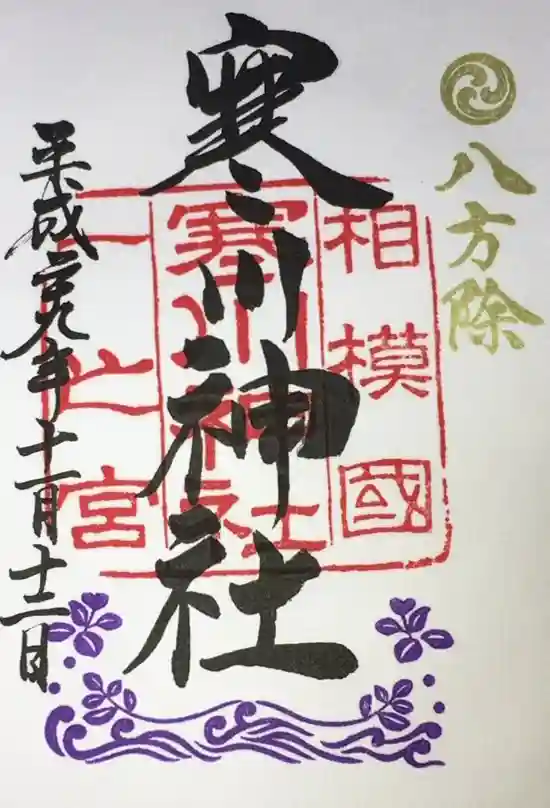 八方除
相模國
寒川神社
一之宮
寒川神社
平成二十九年十一月十二日